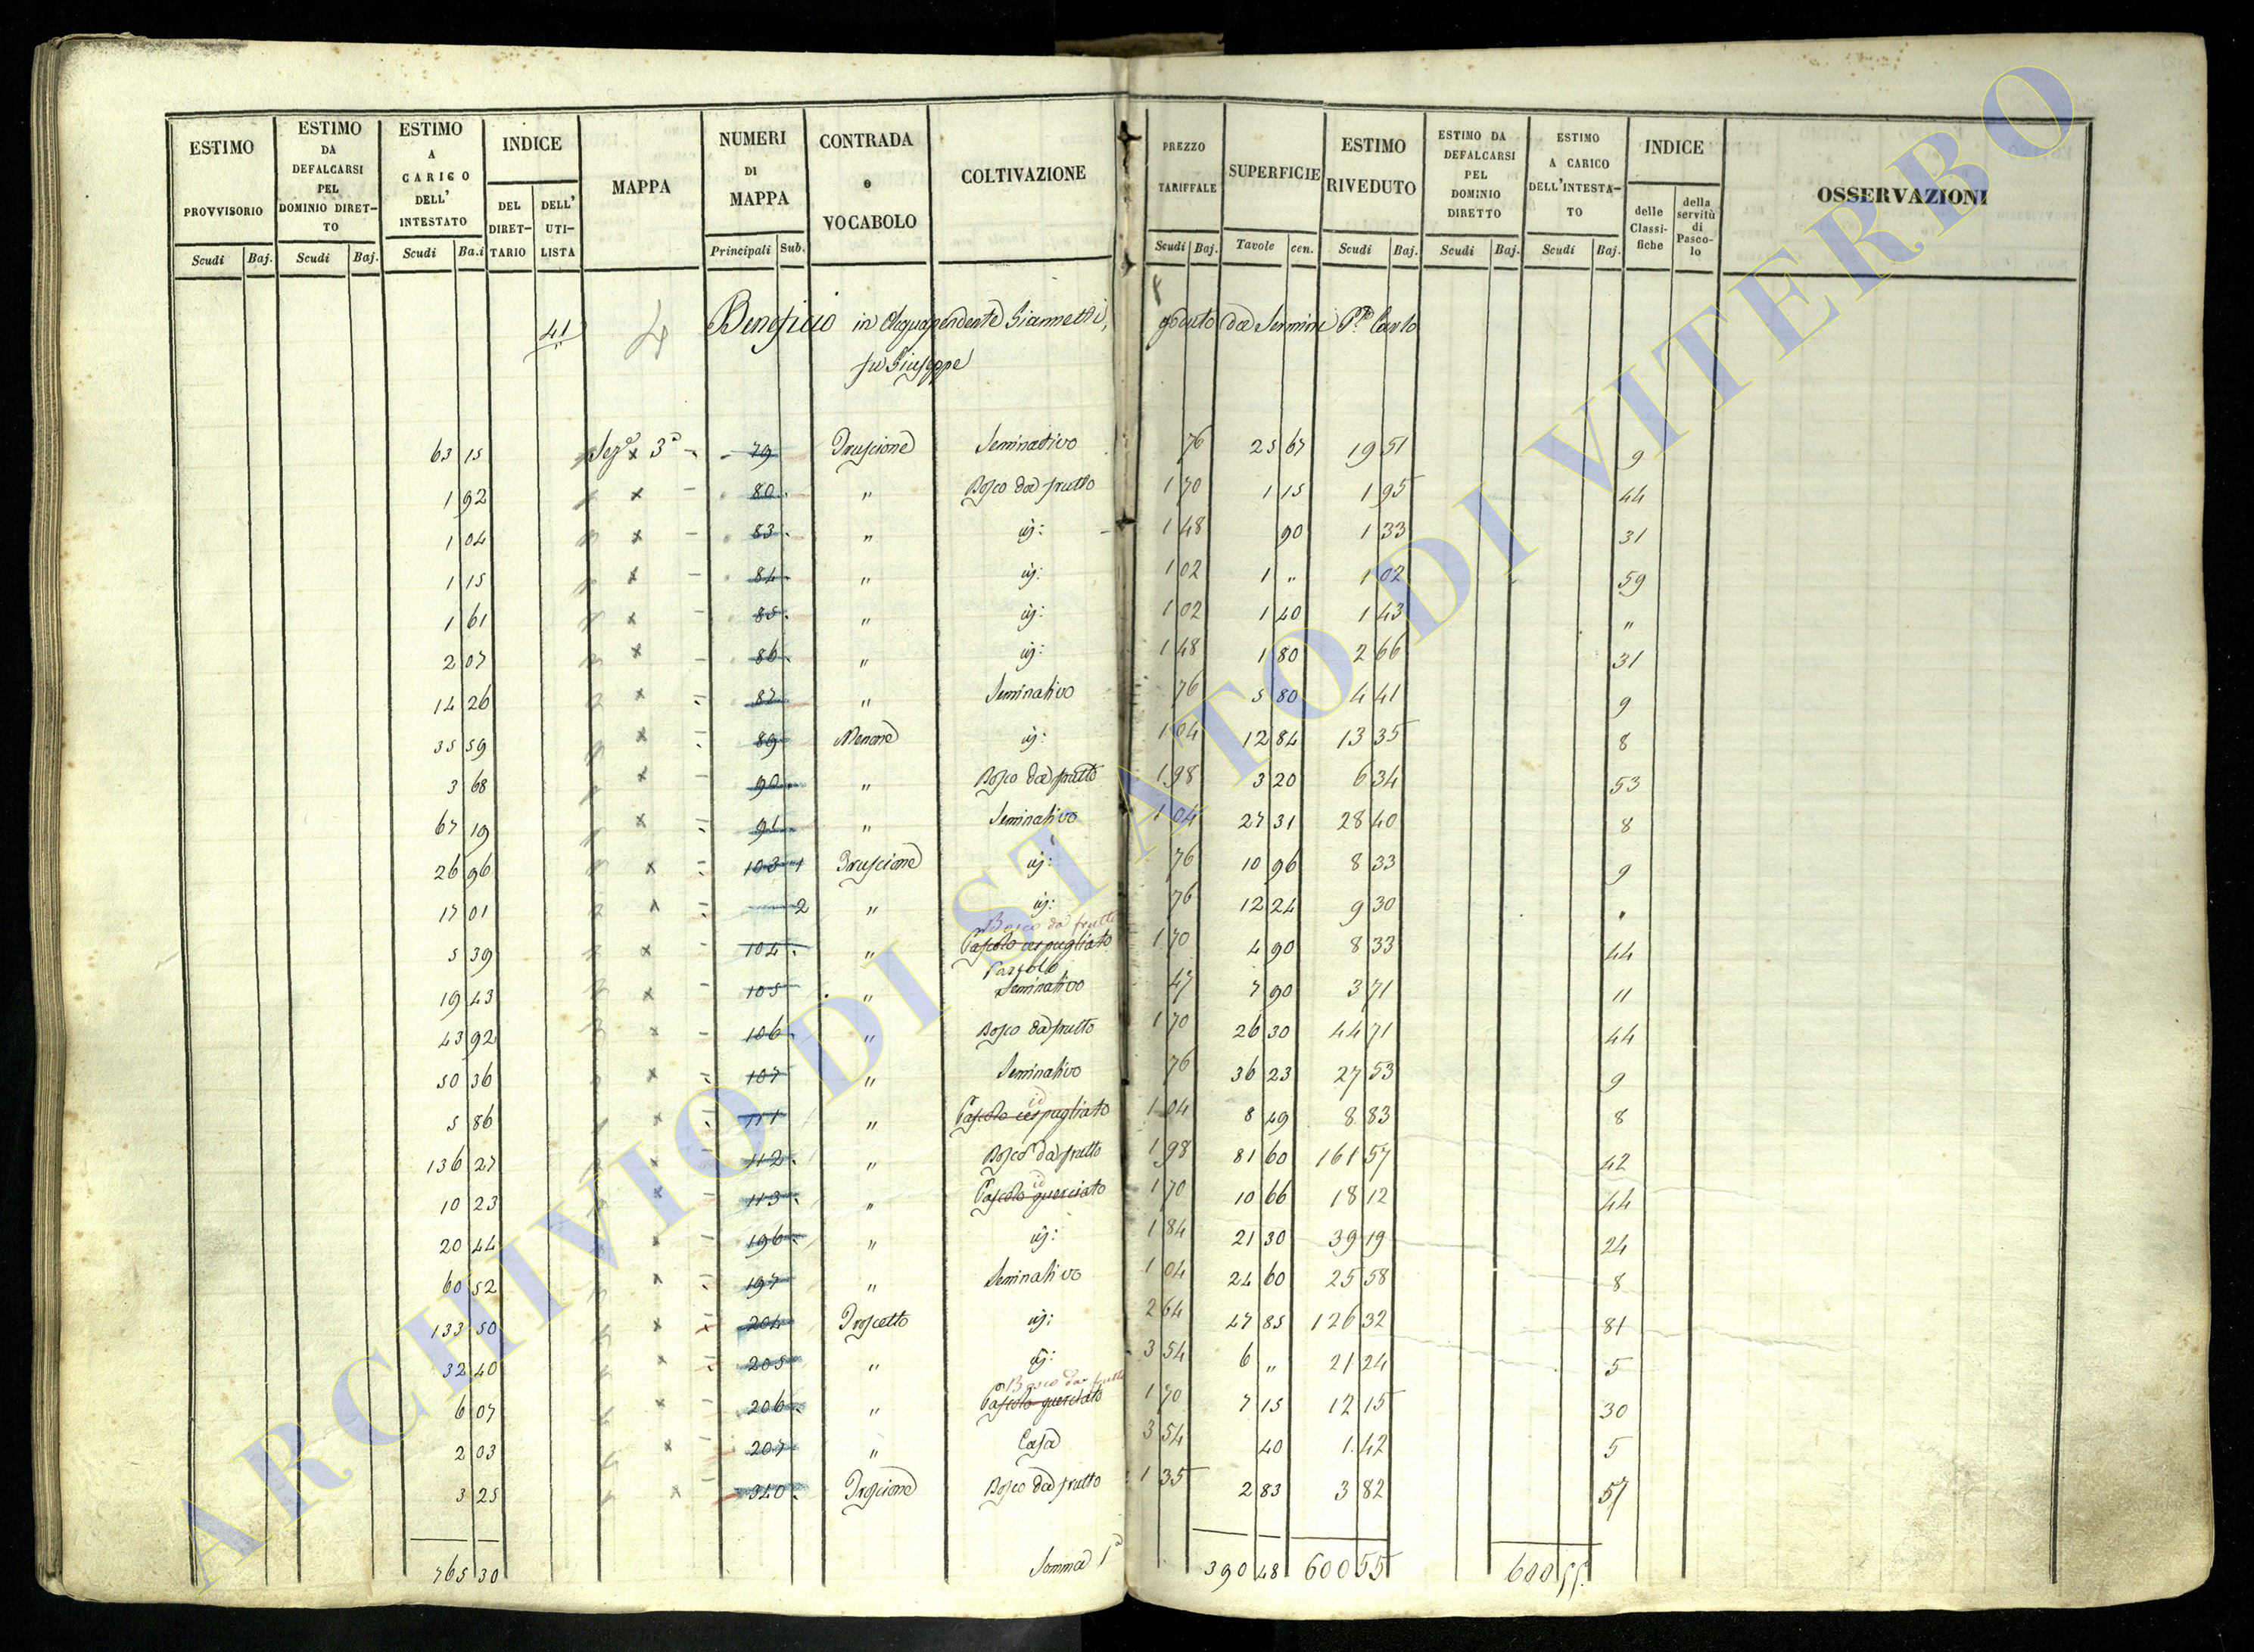 ESTIMO PROVVISORIO
Scudi Baj.
ESTIMO DA DEFALCARSI PEL DOMINIO DIRET-TO
Scudi Baj.
ESTIMO A CARICO DELL' INTESTATO
Scudi Ba.i
INDICE
DEL DIRET-TARIO
DELL' UTI-LISTA
MAPPA
NUMERI DI MAPPA
Principali Sub.
CONTRADA e VOCABOLO
COLTIVAZIONE
PREZZO TARIFFALE
Scudi Baj.
SUPERFICIE
Tavole cen.
ESTIMO RIVEDUTO
Scudi Baj.
ESTIMO DA DEFALCARSI PEL DOMINIO DIRETTO
Scudi Baj.
ESTIMO A CARICO DELL'INTESTA-TO
Scudi Baj.
INDICE
delle Classi-fiche
della servitù di Pasco-lo
OSSERVAZIONI
41 Beneficio in Acquapendente Giannetti, goduto da Carlo
fu Giuseppe
63 15 Sez.e 3a 79 Seminativo 76 25 67 19 51 9
1 92 80 " Bosco da frutto 1 70 1 15 1 95 44
1 04 83 " id: 1 48 90 1 33 31
1 15 84 " id: 1 02 1 " 1 02 59
1 61 85 " id: 1 02 1 40 1 43 "
2 07 86 " id: 1 48 1 80 2 66 31
14 26 87 " Seminativo 76 5 80 4 41 9
35 59 89 id: 1 04 12 84 13 35 8
3 68 90 " Bosco da frutto 1 98 3 20 6 34 53
67 19 91 " Seminativo 1 04 27 31 28 40 8
26 96 103 1 id: 76 10 96 8 33 9
17 01 2 " id: 76 12 24 9 30
Bosco da frutto
5 39 104 " Pascolo cespugliato 1 70 4 90 8 33 44
Pascolo
19 43 105 " Seminativo 47 7 90 3 71 11
43 92 106 " Bosco da frutto 1 70 26 30 44 71 44
50 36 107 " Seminativo 76 36 23 27 53 9
id
5 86 111 " Pascolo cespugliato 1 04 8 49 8 83 8
136 27 112 " Bosco da frutto 1 98 81 60 161 57 42
id
10 23 113 " Pascolo querciato 1 70 10 66 18 12 44
20 44 196 " id: 1 84 21 30 39 19 24
60 52 197 " Seminativo 1 04 24 60 25 58 8
133 50 204 id: 2 64 47 85 126 32 81
32 40 205 " id: 3 54 6 " 21 24 5
Bosco da frutto
6 07 206 " Pascolo querciato 1 70 7 15 12 15 30
2 03 207 " Casa 3 54 40 1 42 5
3 25 340 Bosco da frutto 1 35 2 83 3 82 57
765 30 Somma 1a 390 48 600 55 600 55
ARCHIVIO DI STATO DI VITERBO